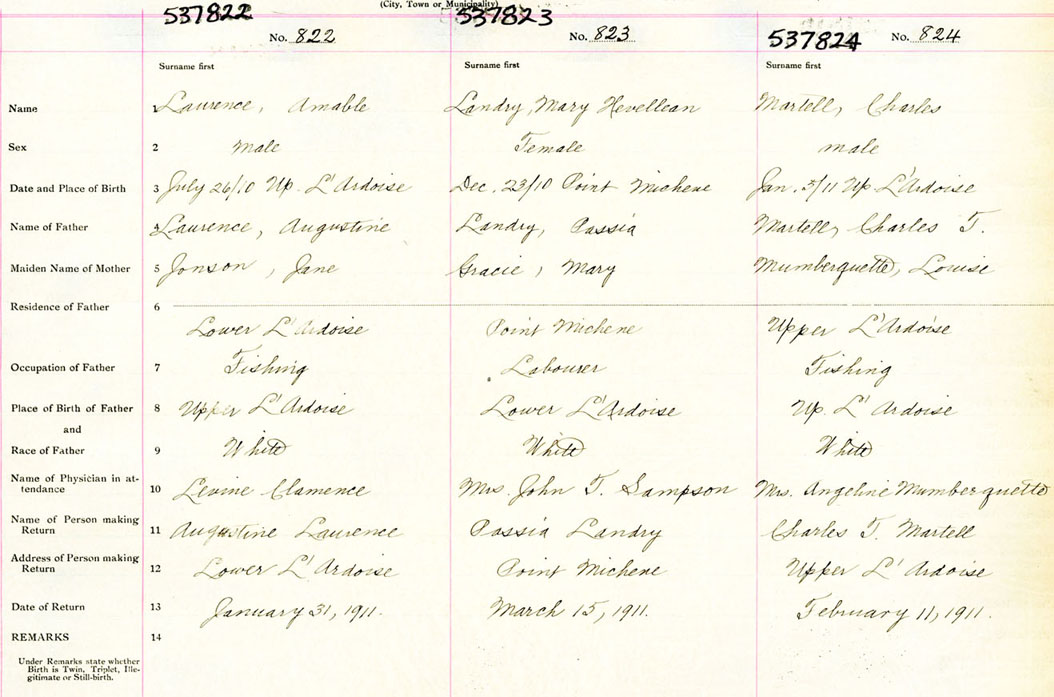 (City, Town or Municipality)
537822 537823
No. 822 No. 823 537824 No. 824
Surname first Surname first Surname first
Name 1 Laurence, Amable Landry, Mary Hevellean Martell, Charles
Sex 2 Male Female male
Date and Place of Birth 3 July 26/10 Up. L'Ardoise Dec. 23/10 Point Michene Jan. 3/11 Up L'Ardoise
Name of Father 4 Laurence, Augustine Landry, Passia Martell, Charles T.
Maiden Name of Mother 5 Jonson, Jane Gracie, Mary Mumberquette, Louise
Residence of Father 6
Lower L'Ardoise Point Michene Upper L'Ardoise
Occupation of Father 7 Fishing Labourer Fishing
Place of Birth of Father 8 Upper L'Ardoise Lower L'Ardoise Up. L'Ardoise
and
Race of Father 9 White White White
Name of Physician in at-
tendance 10 Levine Clamence Mrs. John T. Sampson Mrs. Angeline Mumberquette
Name of Person making
Return 11 Augustine Laurence Passia Landry Charles T. Martell
Address of Person making
Return 12 Lower L'Ardoise Point Michene Upper L'Ardoise
Date of Return 13 January 31, 1911. March 15, 1911. February 11, 1911.
REMARKS 14
Under Remarks state whether
Birth is Twin, Triplet, Ille-
gitimate or Still-birth.